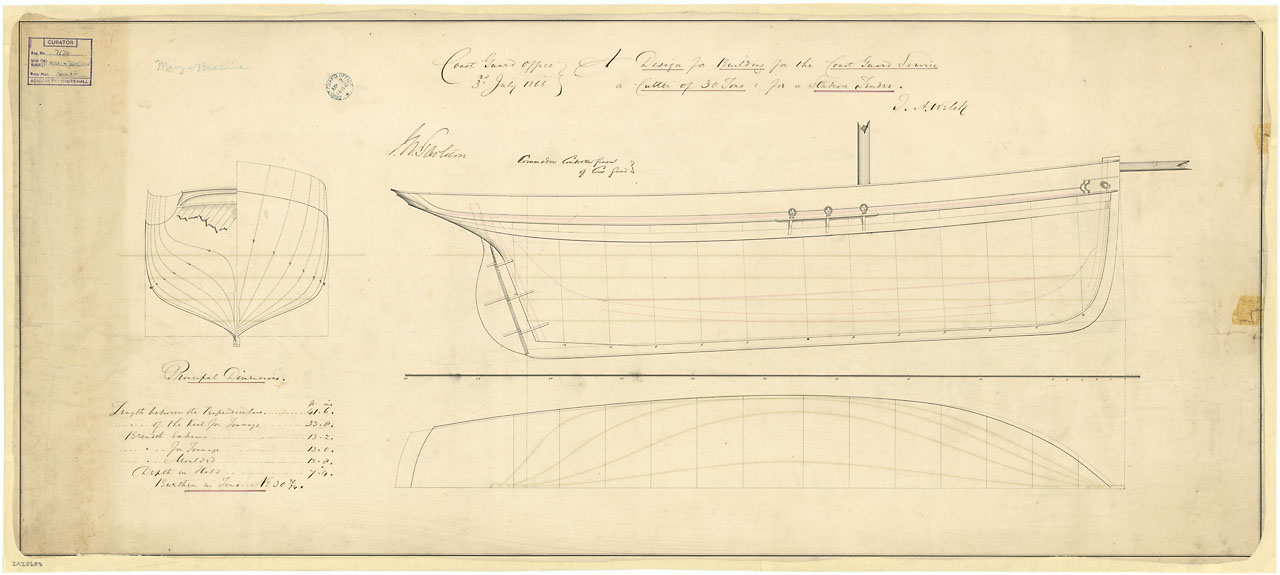 CURATOR
Reg. No. 7120
ADMIRALTY, WHITEHALL
Coast Guard Office
3rd July 1866
A Design for Building for the Coast Guard Service
a Cutter of 30 Tons : for a Station Tender.
Commodore Controller General
of Coast Guard
Principal Dimensions.
Ft. ins
Length between the Perpendiculars. 41.6.
of the Keel for Tonnage 33.8.
Breadth Extreme 13.2.
" for Tonnage 13.0.
" Moulded
Depth in Hold 7.4.
Burthen in Tons No 30